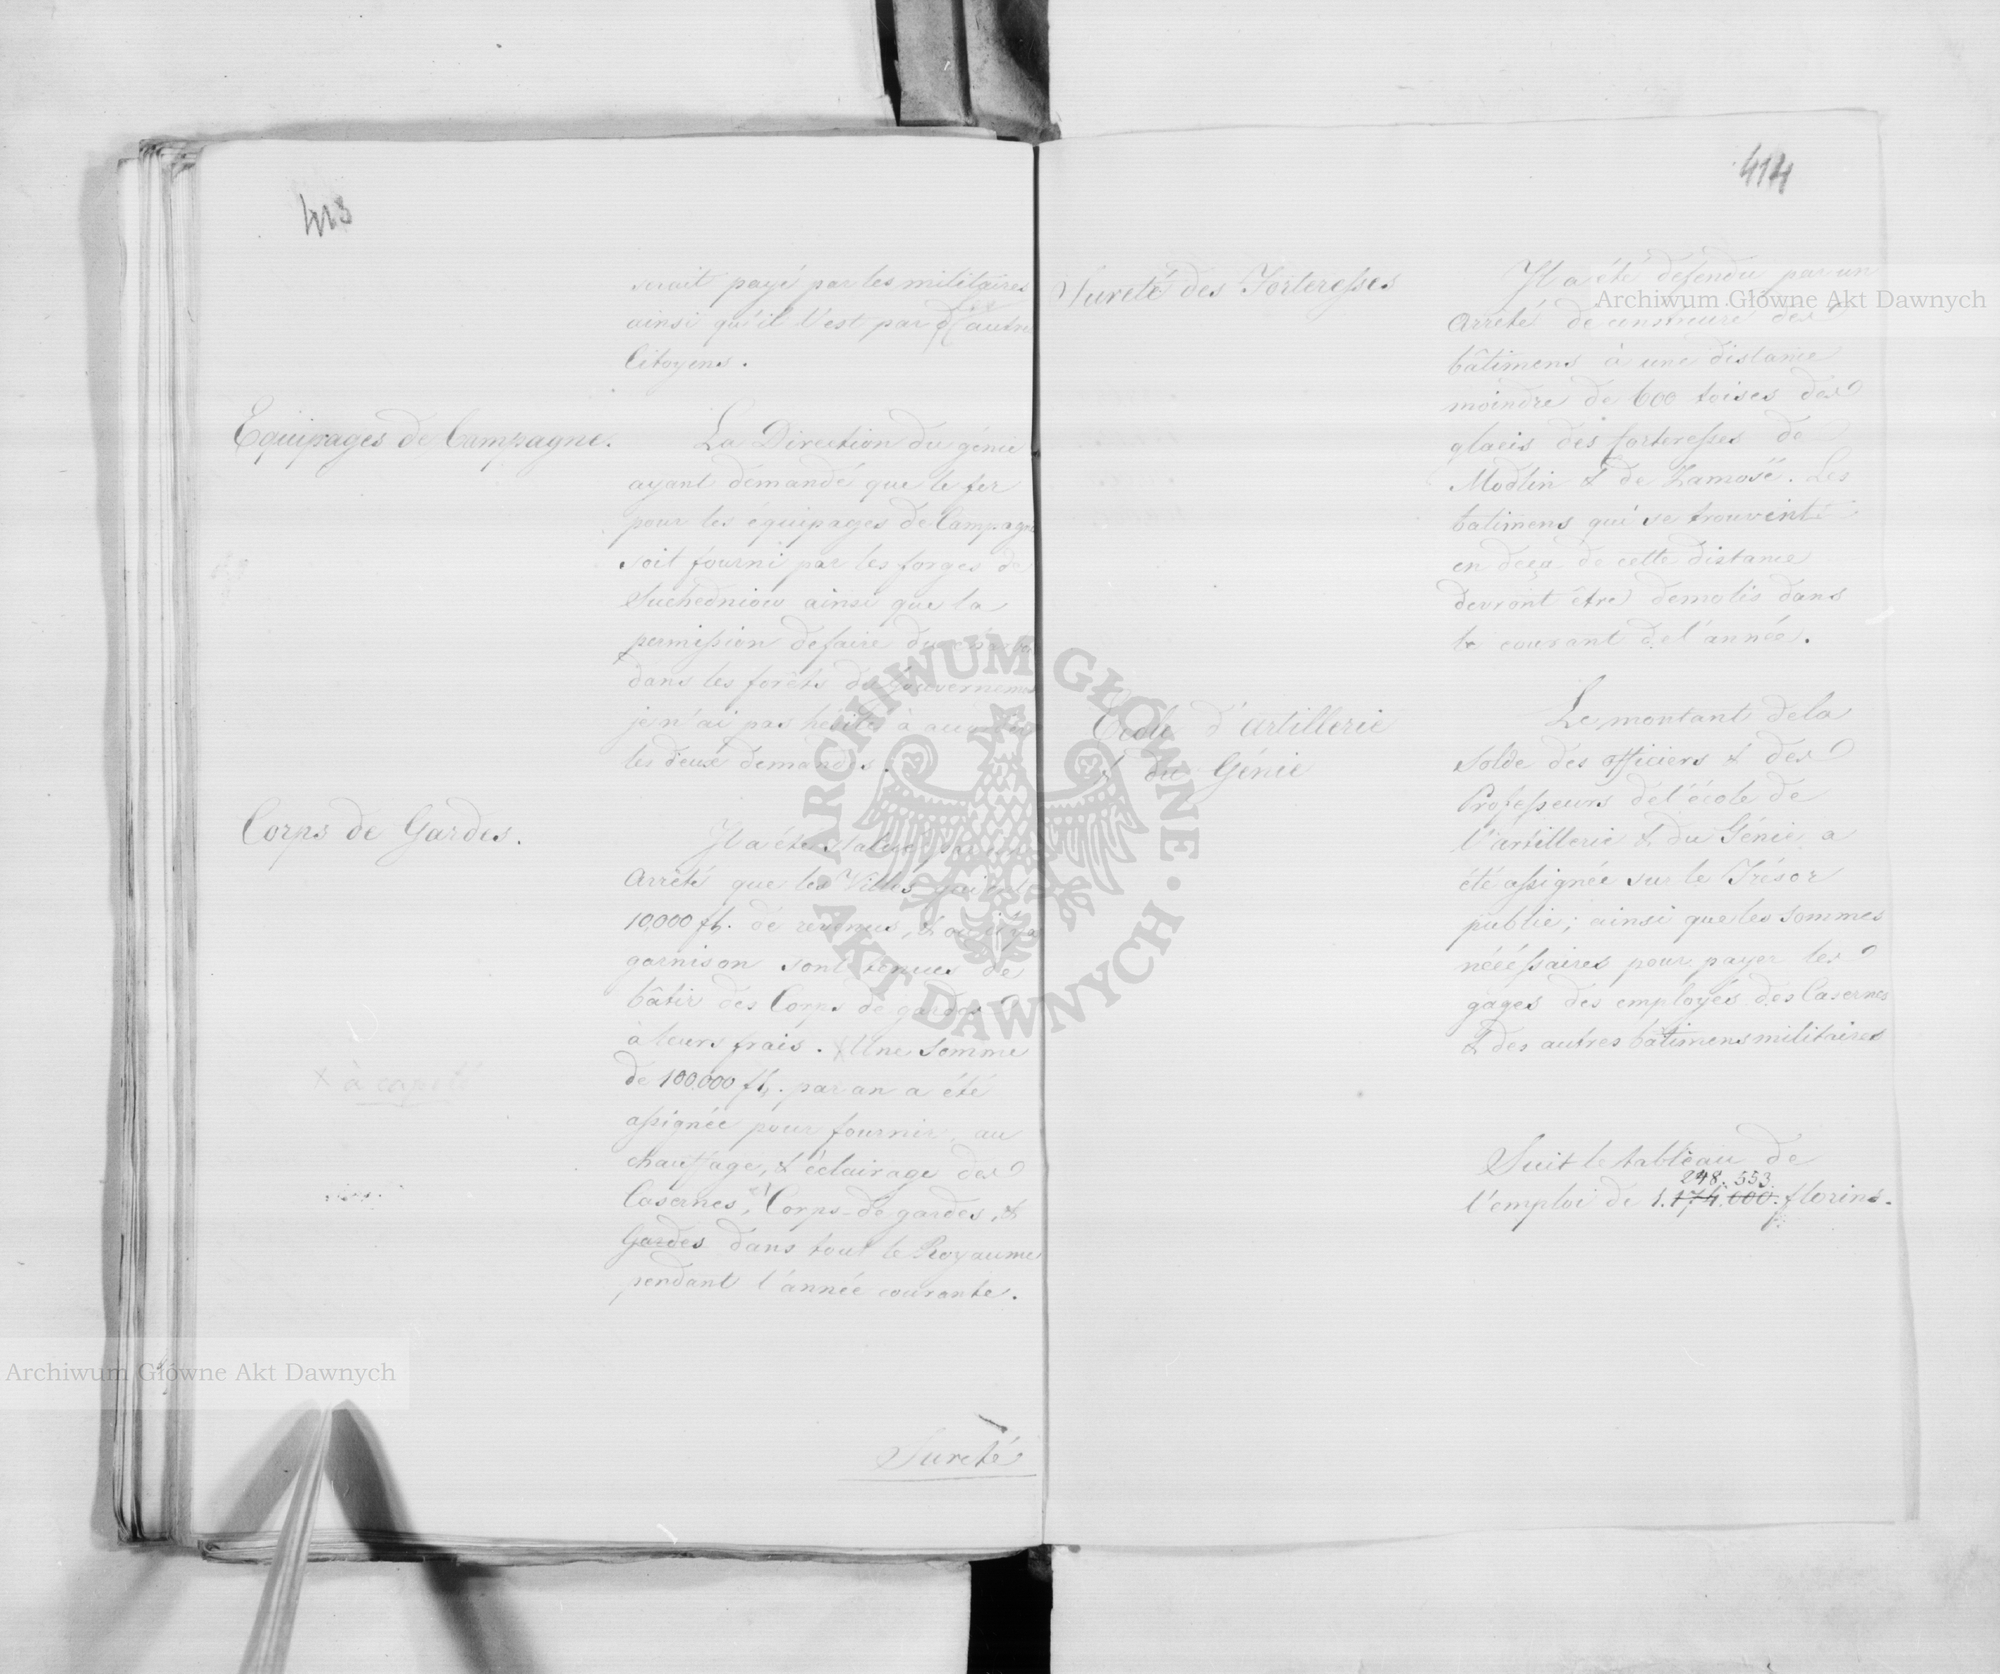 413
serait payé par les militaires
ainsi qu'il l'est par les autres
Citoyens.
Equipages de Campagne.
La Direction du génie
ayant démandé que le fer
pour les équipages de Campagne
soit fourni par les forges de
Suchedniow ainsi que la
permission de faire du charbon
dans les forêts du Gouvernement
je n'ai pas hésité à accorder
les deux demandes.
Corps de Gardes.
Il a été statué par un
Arrêté que les Villes qui ont
10,000 fl. de revenus, & où il y a
garnison sont tenues de
bâtir des Corps de gardes
à leurs frais. Une Somme
x à capite
de 100,000 fl. par an a été
assignée pour fournir au
chauffage, & éclairage des
Casernes, Corps-de gardes, &
Gardes dans tout le Royaume
pendant l'année courante.
Sureté
414
Sureté des Forteresses
Il a été défendu par un
Arrêté de construire des
bâtimens à une distance
moindre de 600 toises des
glacis des forteresses de
Modlin & de Zamosć. Les
batimens qui se trouvent
en deça de cette distance
devront être demolis dans
le courant de l'année.
Ecole d'artillerie
& du Génie
Le montant de la
Solde des officiers & des
Professeurs de l'école de
l'artillerie & du Génie a
été assignée sur le Trésor
public; ainsi que les sommes
nécéssaires pour payer les
gages des employés des Casernes
& des autres bâtimens militaires
Suit le tableau de
248.553.
l'emploi de 1.174.000. florins.
Archiwum Główne Akt Dawnych
ARCHIWUM GŁÓWNE
AKT DAWNYCH
Archiwum Główne Akt Dawnych